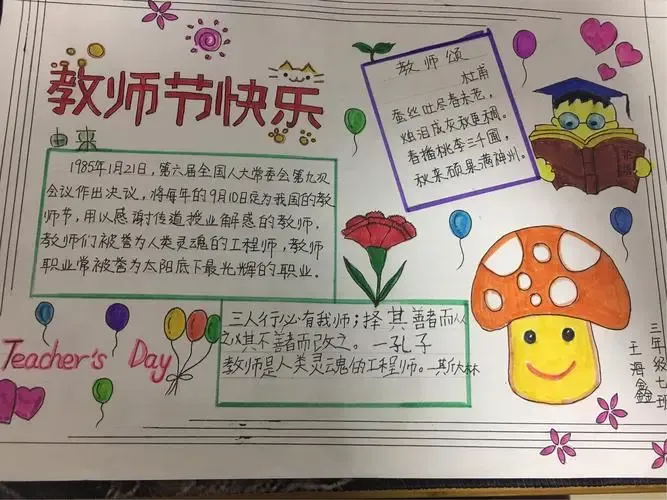 教师节快乐
由来
1985年1月21日,第六届全国人大常委会第九次
会议作出决议,将每年的9月10日定为我国的教
师节,用以感谢传道授业解惑的教师。
教师们被誉为人类灵魂的工程师,教师
职业常被誉为太阳底下最光辉的职业。
教师颂
杜甫
蚕丝吐尽春未老,
烛泪成灰秋更稠。
春播桃李三千圃,
秋来硕果满神州。
三人行必有我师;择其善者而从
之以其不善者而改之。一孔子
教师是人类灵魂的工程师。一斯大林
Teacher's Day
三年级七班
王海鑫